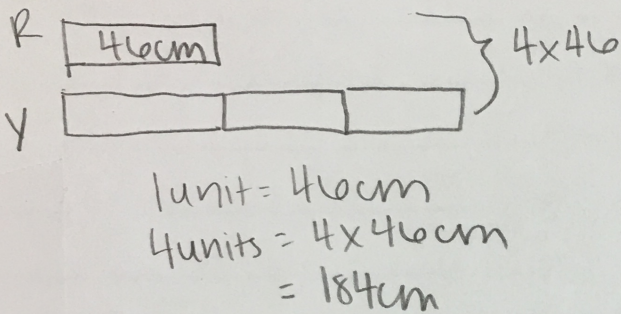 R
46cm
4x46
Y
1unit = 46cm
4units = 4x46cm
= 184cm